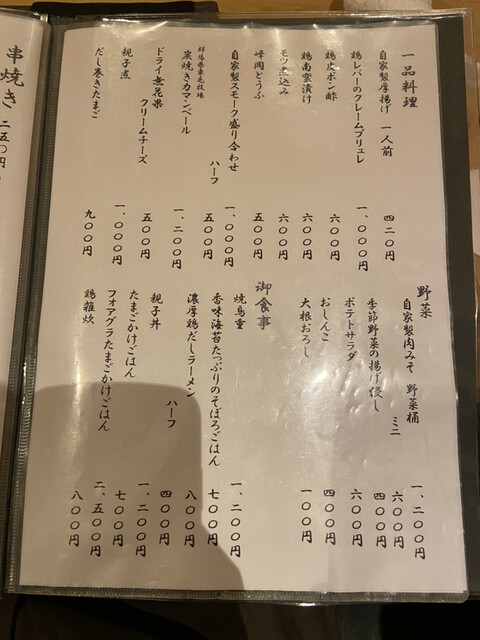 一品料理
自家製厚揚げ 一人前 四二〇円
鶏レバーのクレームブリュレ 一、〇〇〇円
鶏皮ポン酢 六〇〇円
鶏南蛮漬け 六〇〇円
モツ煮込み 六〇〇円
峰岡とうふ 五〇〇円
自家製スモーク盛り合わせ 一、〇〇〇円
ハーフ 五〇〇円
群馬県東毛牧場
炭焼きカマンベール 一、二〇〇円
ドライ無花果 クリームチーズ 五〇〇円
親子煮 一、〇〇〇円
だし巻きたまご 九〇〇円
野菜
自家製肉みそ 野菜桶 一、二〇〇円
ミニ 六〇〇円
季節野菜の揚げ浸し 四〇〇円
ポテトサラダ 六〇〇円
おしんこ 四〇〇円
大根おろし 一〇〇円
御食事
焼鳥重 一、二〇〇円
香味海苔たっぷりのそぼろごはん 七〇〇円
濃厚鶏だしラーメン 八〇〇円
ハーフ 四〇〇円
親子丼 一、二〇〇円
たまごかけごはん 七〇〇円
フォアグラたまごかけごはん 二、五〇〇円
鶏雑炊 八〇〇円
串焼き 二五〇円